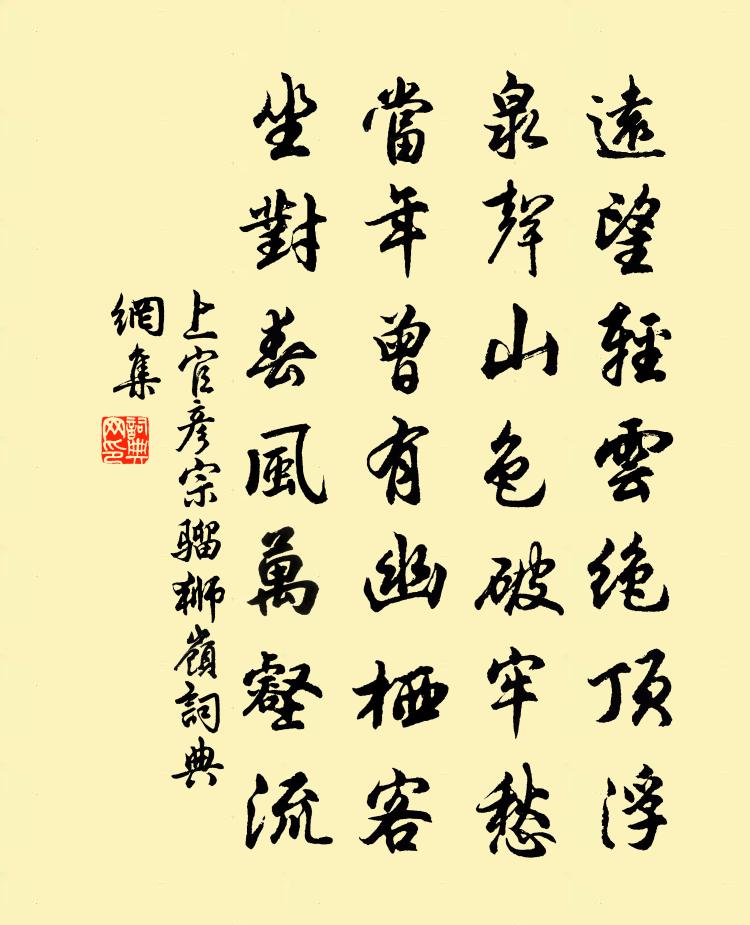 遠望輕雲絶頂浮
泉聲山色破牢愁
當年曾有幽栖客
坐對春風萬壑流
上官彦宗騮狮嶺詞典
網集
詞典
网印